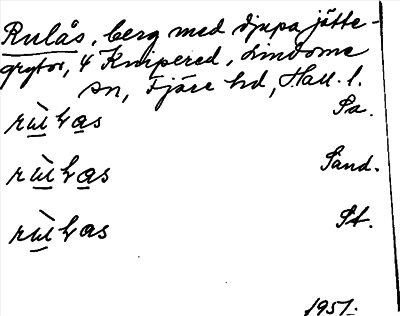 Rulås, berg med djupa jätte-
grytor, 4 Knipered, Lindome
sn, Fjäre hd, Hall. l.
Sa.
Sand.
St.
1951.